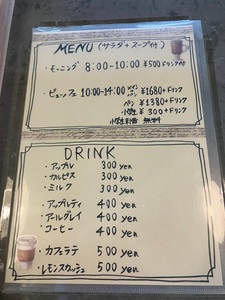 MENU (サラダ+スープ付)
・モーニング 8:00-10:00 ¥500ドリンク付
・ビュッフェ 10:00-14:00 メイン ¥1680+ドリンク
パン ¥1380+ドリンク
小学生 ¥300+ドリンク
小学生未満 無料
DRINK
・アップル 300 yen
・カルピス 300 yen
・ミルク 300 yen
・アップルティ 400 yen
・アールグレイ 400 yen
・コーヒー 400 yen
・カフェラテ 500 yen
・レモンスカッシュ 500 yen